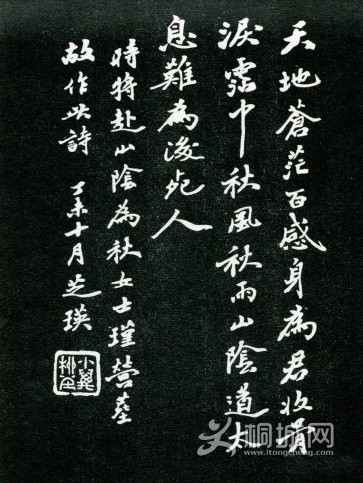 天地蒼茫百感身為君收骨
淚霑巾秋風秋雨山陰道太
息難為後死人
時將赴山陰為秋女士瑾營塟
故作此詩 丁未十月芝瑛
小萬柳堂
桐城网
www.itongcheng.com